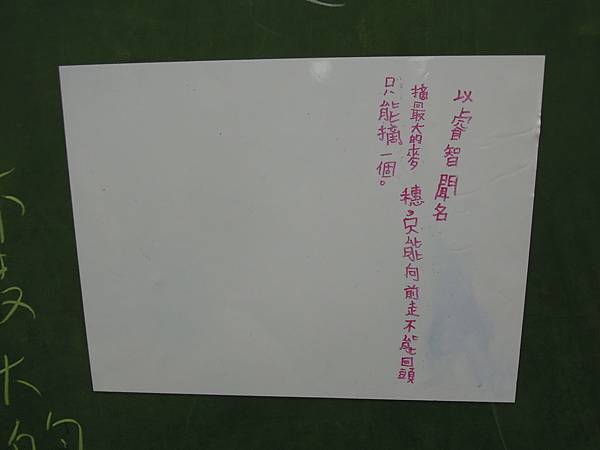 以睿智聞名
摘最大的麥穗。只能向前走不能回頭
只能摘一個。